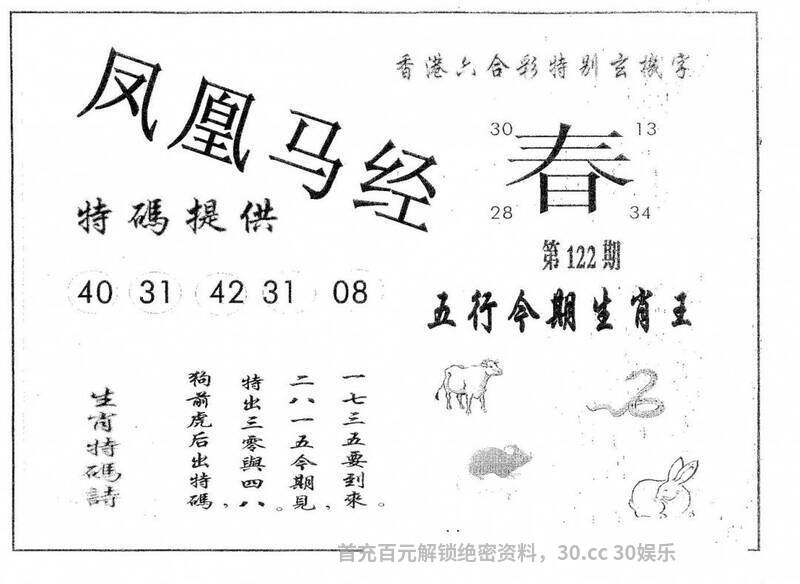 凤凰马经
香港六合彩特别玄機字
30 13
春
28 34
特碼提供
第122期
40 31 42 31 08
五行今期生肖王
一七三五要到來。
二八一五今期見,
特出三零與四八。
狗前虎后出特碼,
生肖特碼詩
首充百元解锁绝密资料，30.cc 30娱乐